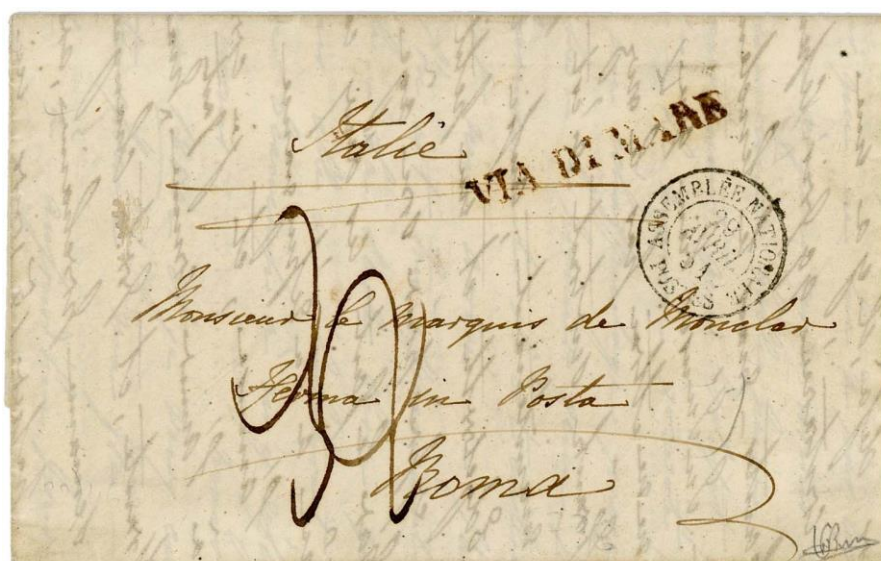 Italie
VIA DI MARE
ASSEMBLÉE NATIONALE
29
AVRIL
51
Monsieur le Marquis de Monclar
Ferma in Posta
Roma